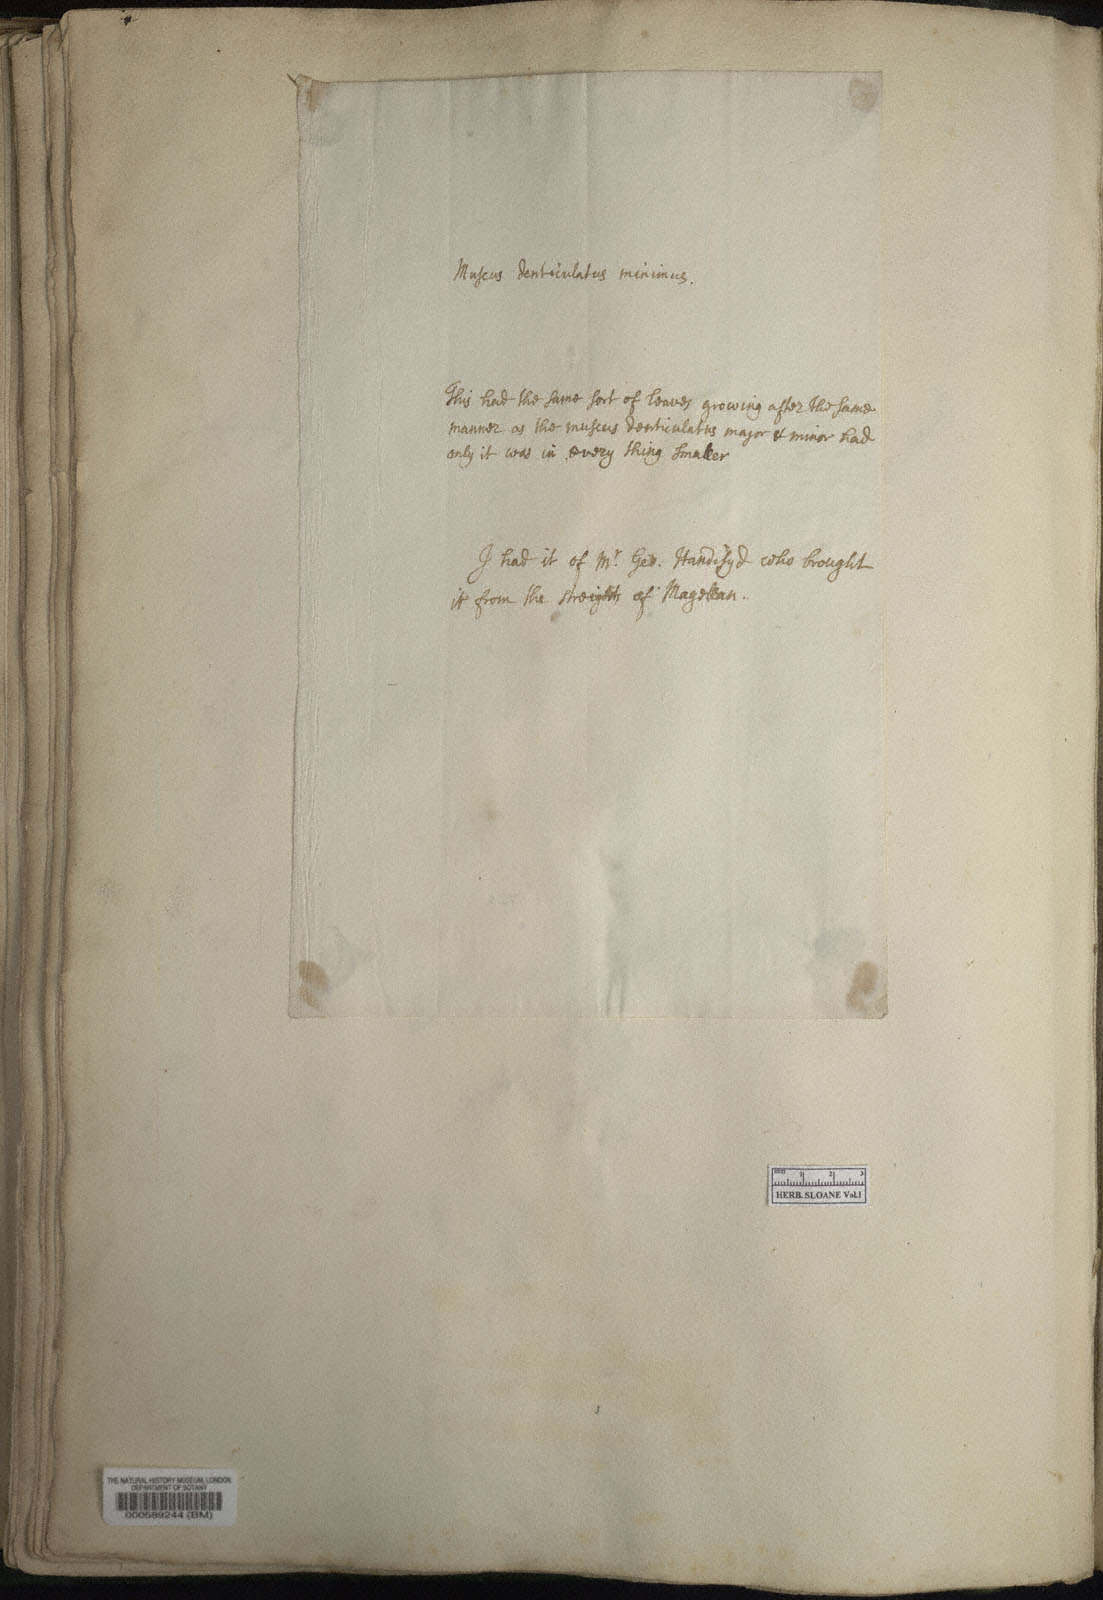 Muscus denticulatus minimus.
This had the same sort of leaves growing after the same
manner as the muscus denticulatus major & minor had
only it was in every thing smaller
I had it of Mr. Geo. Handisyd who brought
it from the streights of Magellan.
mm 1 2 3
HERB. SLOANE Vol.1
THE NATURAL HISTORY MUSEUM, LONDON
DEPARTMENT OF BOTANY
000589244 (BM)